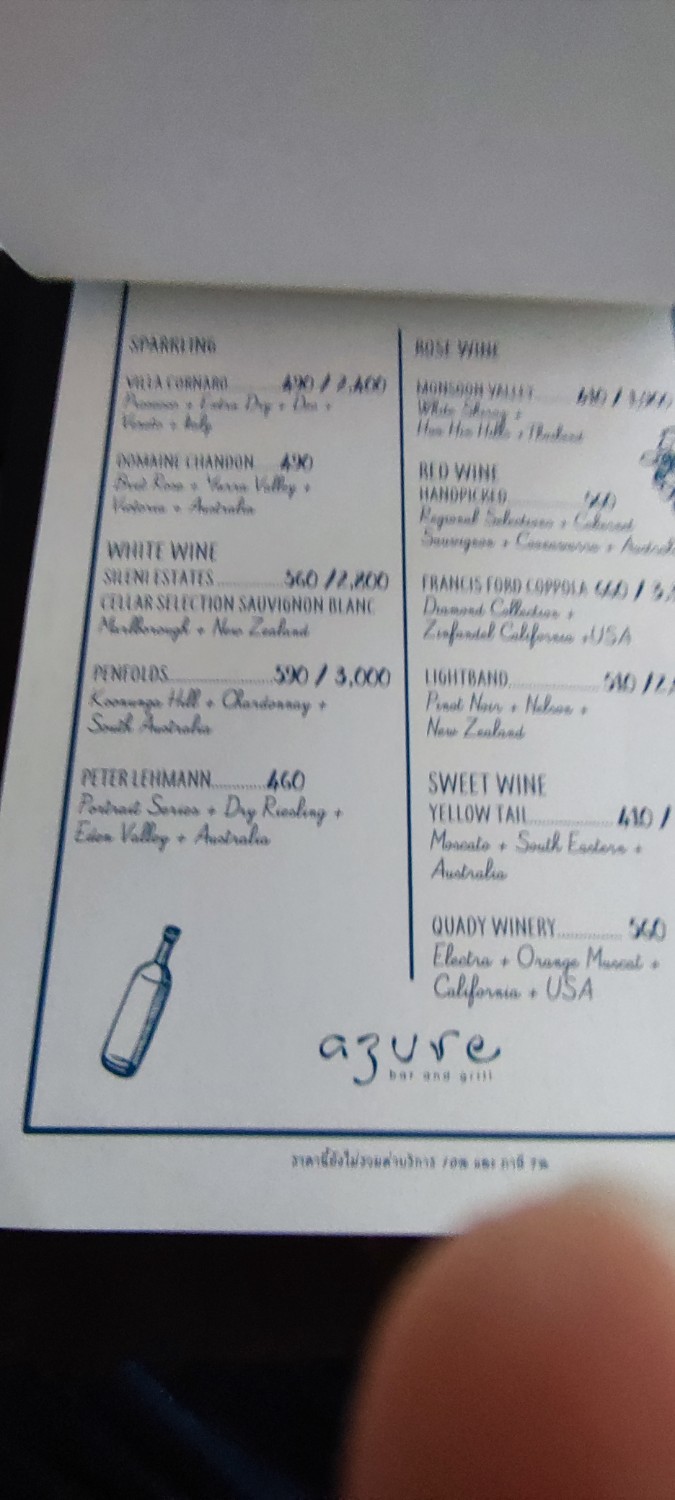 SPARKLING
VILLA CORNARO 490 / 2,400
Prosecco + Extra Dry + Doc +
Veneto + Italy
DOMAINE CHANDON 490
Brut Rose + Yarra Valley +
Victoria + Australia
WHITE WINE
SILENI ESTATES 560 / 2,800
CELLAR SELECTION SAUVIGNON BLANC
Marlborough + New Zealand
PENFOLDS 590 / 3,000
Koonunga Hill + Chardonnay +
South Australia
PETER LEHMANN 460
Portrait Series + Dry Riesling +
Eden Valley + Australia
ROSE WINE
MONSOON VALLEY
White Shiraz +
Hua Hin Hills + Thailand
RED WINE
HANDPICKED
Regional Selections + Cabernet
Sauvignon +
FRANCIS FORD COPPOLA
Diamond Collection +
Zinfandel California + USA
LIGHTBAND
Pinot Noir + Nelson +
New Zealand
SWEET WINE
YELLOW TAIL /
Moscato + South Eastern +
Australia
QUADY WINERY 560
Electra + Orange Muscat +
California + USA
azure
bar and grill
ราคานี้ยังไม่รวมค่าบริการ 10% และ ภาษี 7%